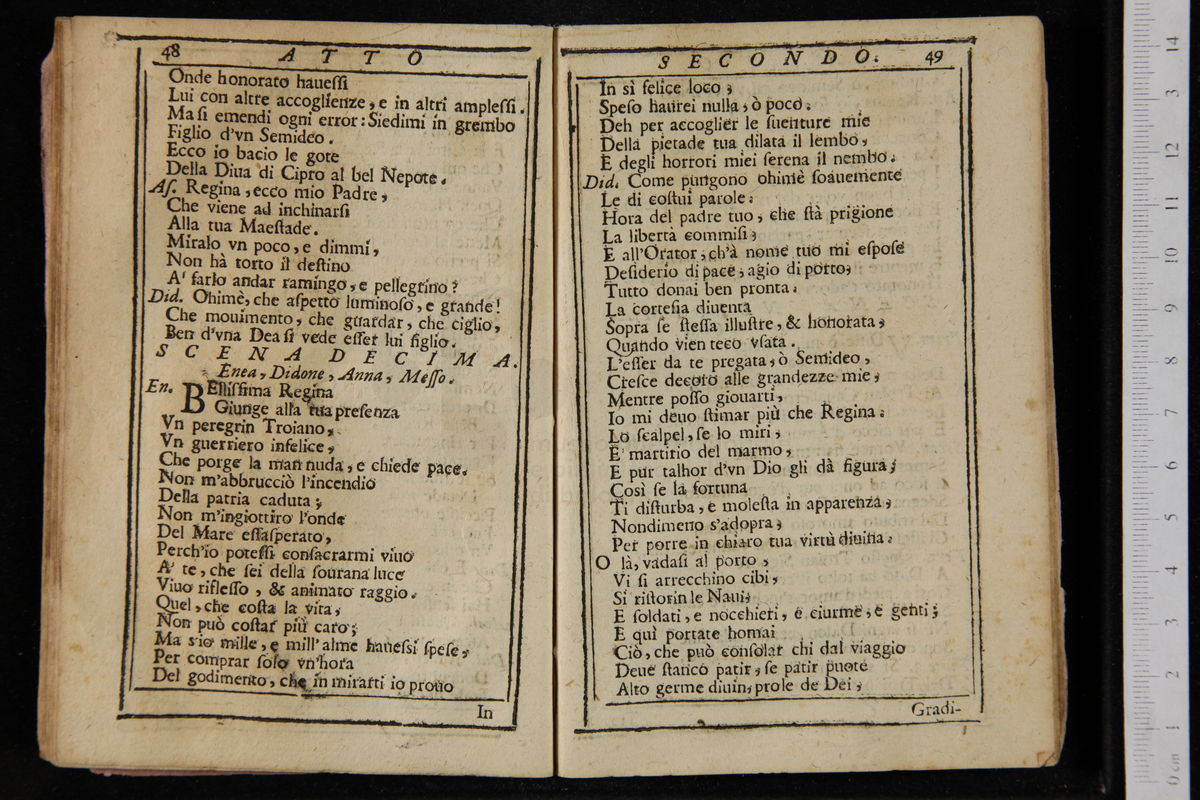 48 ATTO
Onde honorato haueſſi
Lui con altre accoglienze, e in altri ampleſſi.
Ma ſi emendi ogni error: Siedimi in grembo
Figlio d'vn Semideo.
Ecco io bacio le gote
Della Diua di Cipro al bel Nepote.
Aſ. Regina, ecco mio Padre,
Che viene ad inchinarſi
Alla tua Maeſtade.
Miralo vn poco, e dimmi,
Non hà torto il deſtino
A' farlo andar ramingo, e pellegrino?
Did. Ohimè, che aſpetto luminoſo, e grande!
Che mouimento, che guardar, che ciglio,
Ben d'vna Dea ſi vede eſſer lui figlio.
SCENA DECIMA.
Enea, Didone, Anna, Meſſo.
En. BElliſſima Regina
Giunge alla tua preſenza
Vn peregrin Troiano,
Vn guerriero infelice,
Che porge la man nuda, e chiede pace.
Non m'abbrucciò l'incendio
Della patria caduta;
Non m'ingiottiro l'onde
Del Mare eſſaſperato,
Perch'io poteſſi conſacrarmi viuo
A' te, che ſei della ſourana luce
Viuo rifleſſo, & animato raggio.
Quel, che coſta la vita,
Non può coſtar più caro;
Ma s'io mille, e mill'alme haueſſi ſpeſe,
Per comprar ſolo vn'hora
Del godimento, che in mirarti io prouo
In
SECONDO. 49
In sì felice loco;
Speſo haurei nulla, ò poco.
Deh per accoglier le ſuenture mie
Della pietade tua dilata il lembo,
E degli horrori miei ſerena il nembo.
Did. Come pungono ohimè ſoauemente
Le di coſtui parole:
Hora del padre tuo, che ſtà prigione
La libertà commiſi;
E all'Orator, ch'à nome tuo mi eſpoſe
Deſiderio di pace, agio di porto,
Tutto donai ben pronta.
La corteſia diuenta
Sopra ſe ſteſſa illuſtre, & honorata,
Quando vien teco vſata.
L'eſſer da te pregata, ò Semideo,
Creſce decoro alle grandezze mie,
Mentre poſſo giouarti,
Io mi deuo ſtimar più che Regina.
Lo ſcalpel, ſe lo miri,
E' martirio del marmo,
E pur talhor d'vn Dio gli dà figura;
Così ſe la fortuna
Ti diſturba, e moleſta in apparenza,
Nondimeno s'adopra,
Per porre in chiaro tua virtù diuina.
O là, vadaſi al porto,
Vi ſi arrecchino cibi,
Si riſtorin le Naui,
E ſoldati, e nocchieri, e ciurme, e genti;
E quì portate homai
Ciò, che può conſolar chi dal viaggio
Deue ſtanco patir, ſe patir puote
Alto germe diuin, prole de Dei,
Gradi-